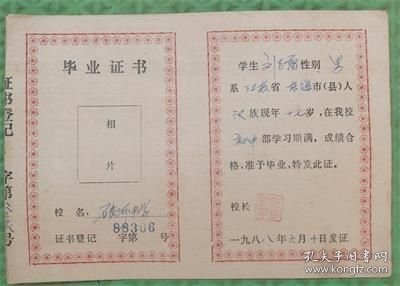 毕业证书
相
片
校 名：
88306
证书登记 字第 号
证书登记 字第 号
学生 性别 男
系 江苏 省 东海 市(县)人
汉 族现年 十七 岁，在我校
部学习期满，成绩合
格、准予毕业，特发此证。
校长
一九八八年六月十日发证
孔夫子旧书网
www.kongfz.com